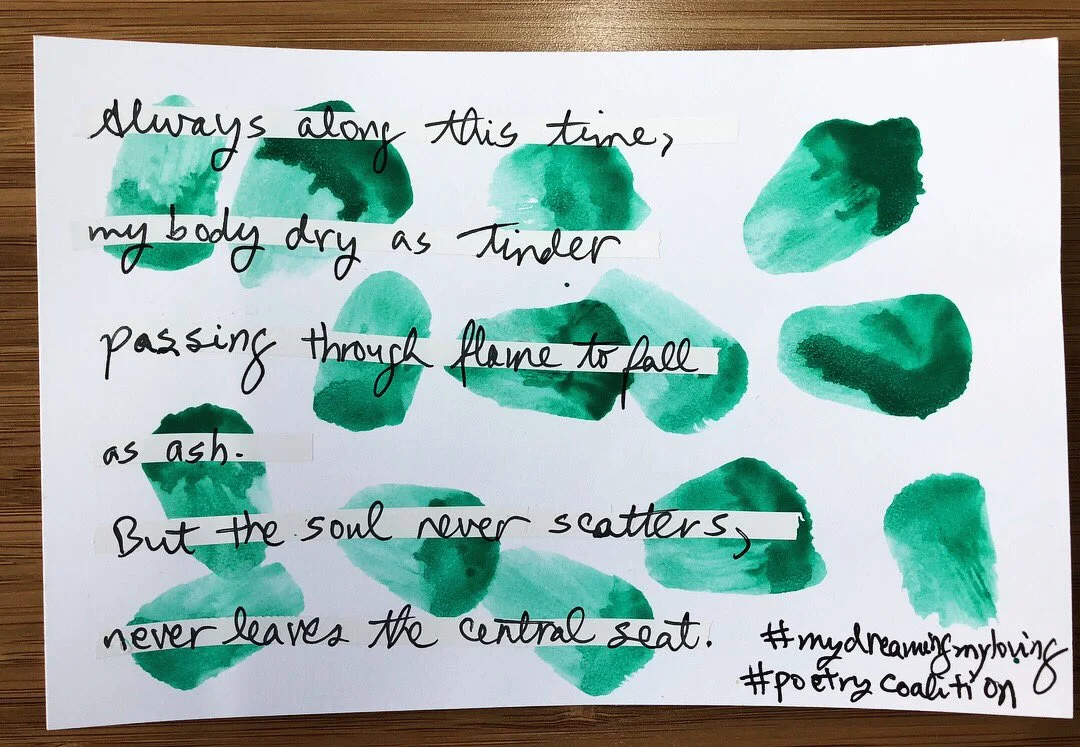 Always along this time,
my body dry as tinder
passing through flame to fall
as ash.
But the soul never scatters,
never leaves the central seat.
#mydreamingmyloving
#poetrycoalition